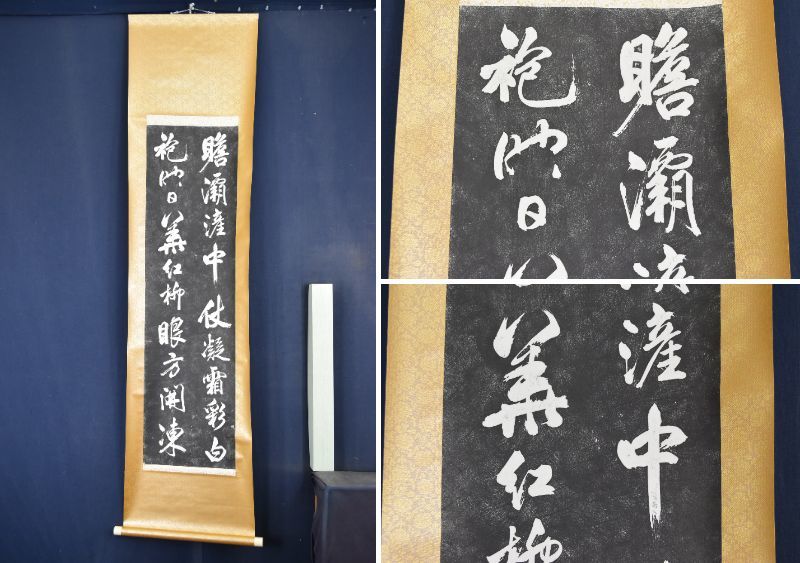 瞻灞滻中仗凝霜彩白
袍映日華紅柳眼方開凍
瞻灞
袍映日
滻中
華紅柳